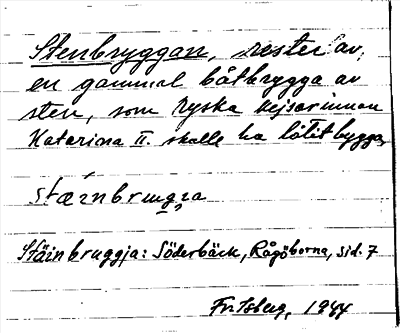 Stenbryggan, rester av
en gammal båtbrygga av
sten, som ryska kejsarinnan
Katarina II. skulle ha låtit bygga,
Stäinbruggja: Söderbäck, Rågöborna, sid. 7
1944